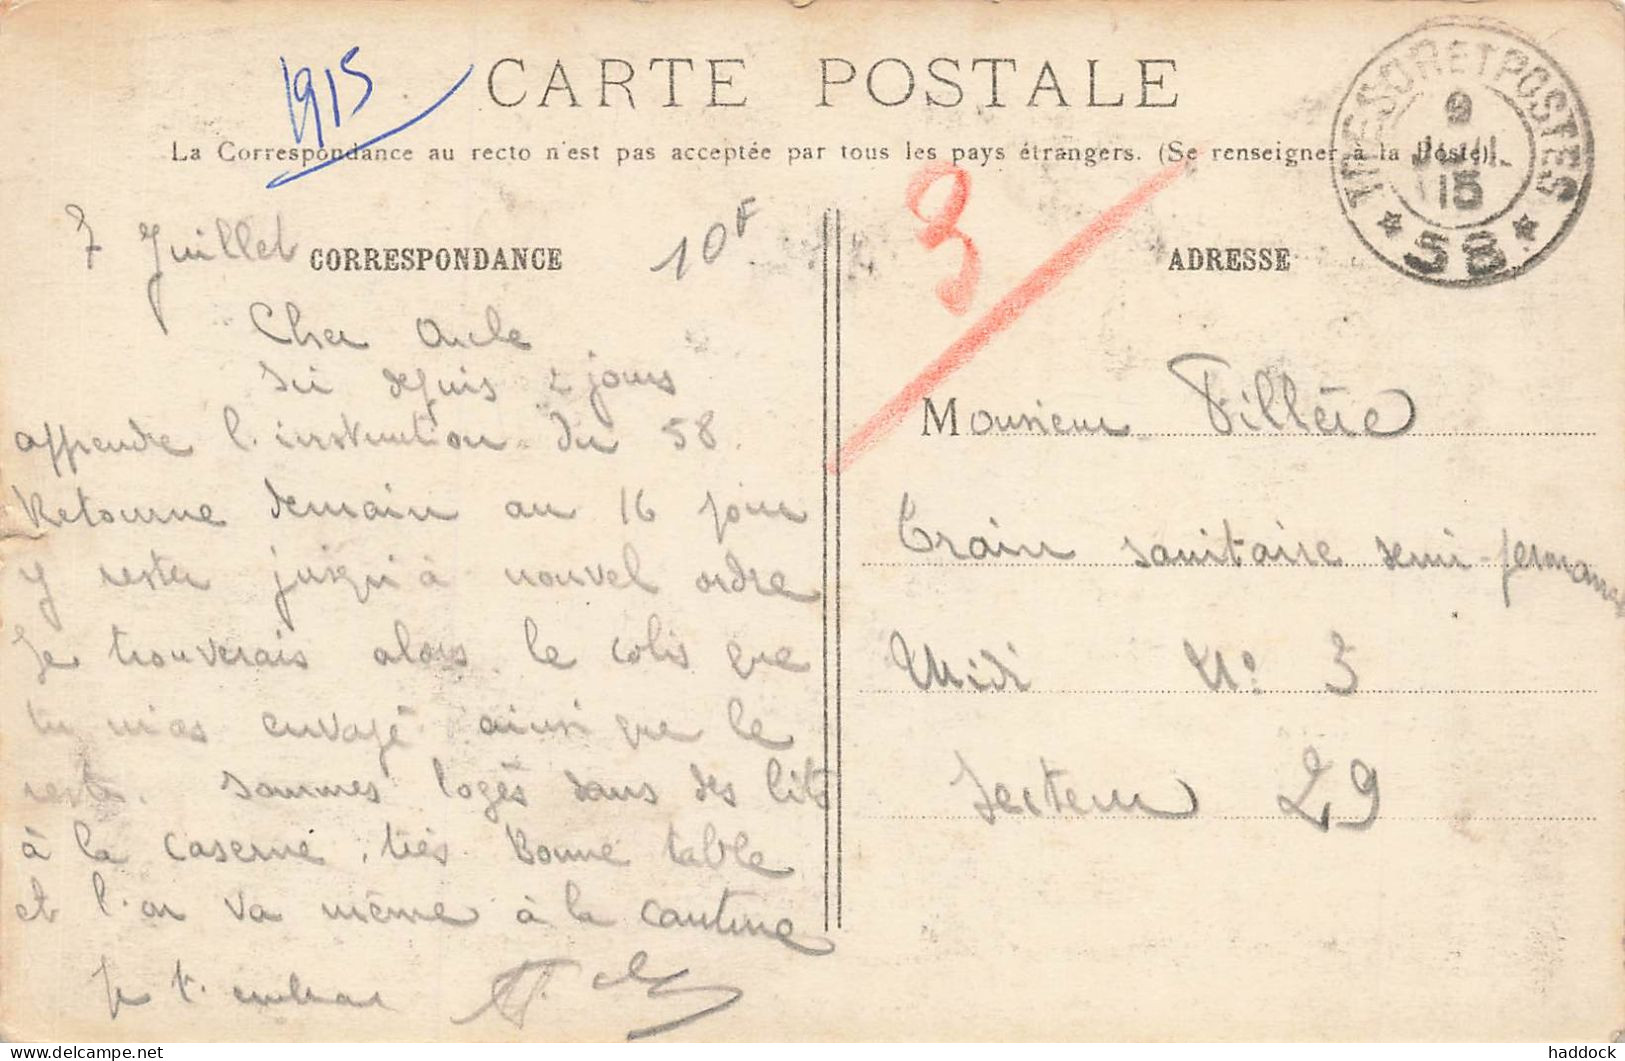 1915
CARTE POSTALE
La Correspondance au recto n'est pas acceptée par tous les pays étrangers. (Se renseigner à la Poste).
TRESOR ET POSTES
9
JUIL
15
* 58 *
7 Juillet
CORRESPONDANCE
10F
Cher Oncle
Ici depuis 2 jours
apprendre l'instruction du 58.
Retourne demain au 16 pour
y rester jusqu'à nouvel ordre
Je trouverais alors le colis que
tu m'as envoyé ainsi que le
reste. Sommes logés dans des lits
à la caserne, très Bonne table
et l'on va même à la cantine
Je t'embrasse
3
ADRESSE
Monsieur Fillère
Train sanitaire semi-permanent
Midi N° 3
Secteur 29
delcampe.net
haddock_